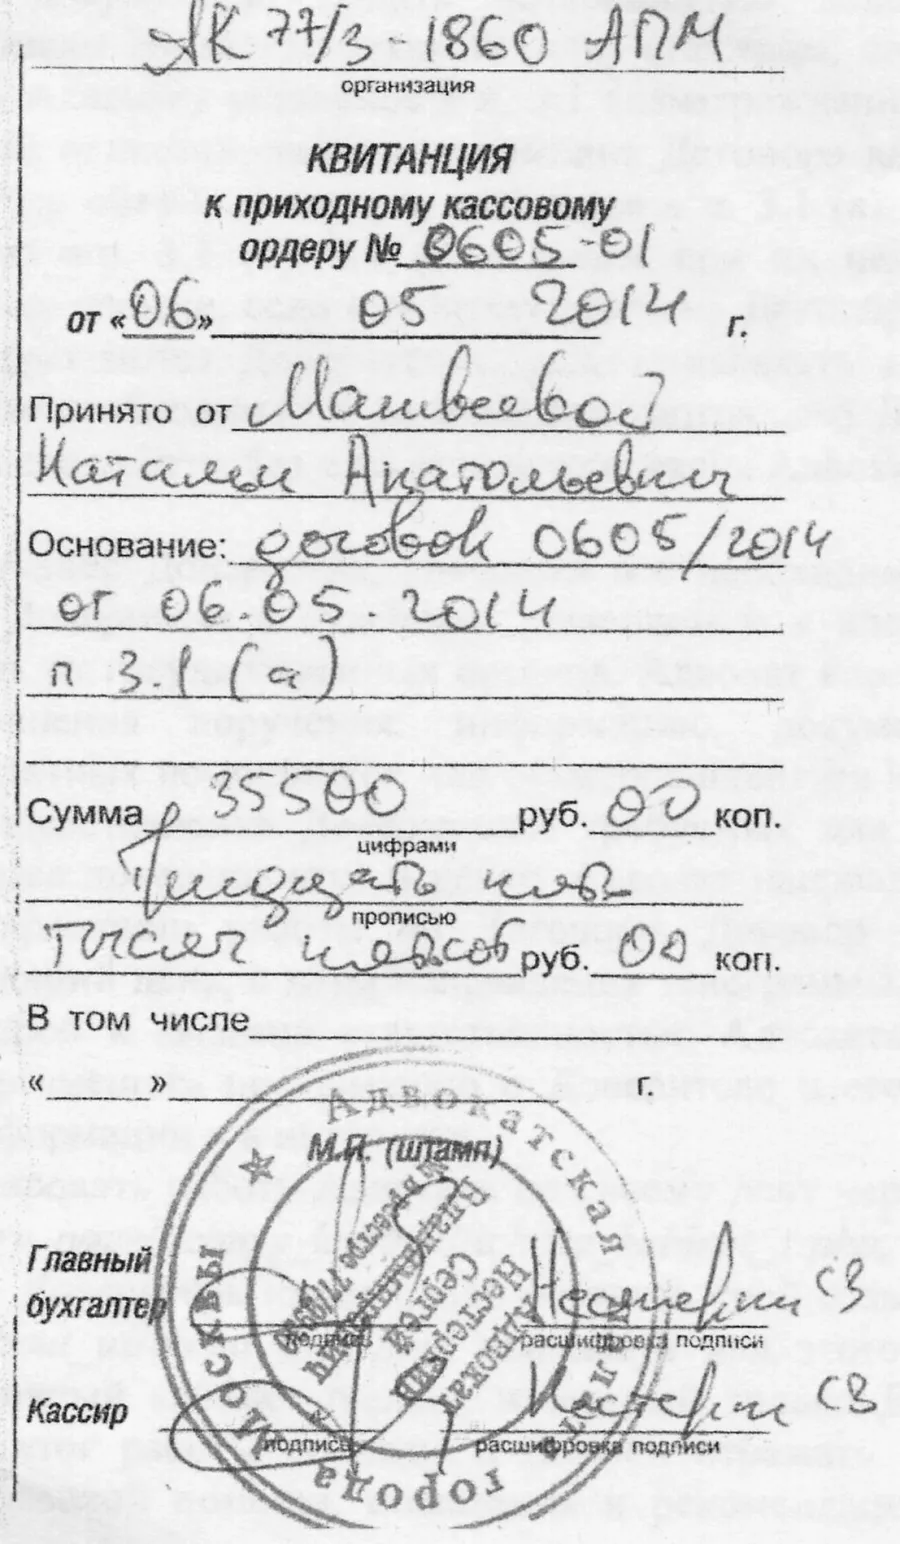 АК 77/3 1860 АПМ
организация
КВИТАНЦИЯ
к приходному кассовому
ордеру № 0605-01
от «06» 05 2014 г.
Принято от Матвеевой
Наталии Анатольевич
Основание: договор 0605/2014
от 06.05.2014
п 3.1 (а)
Сумма 35500 руб. 00 коп.
цифрами
Тридцать пять
прописью
тысяч пятьсот руб. 00 коп.
В том числе
« » г.
М.П. (штамп)
Адвокатская
города Москвы
Адвокат
Нестеров
Сергей
Главный
бухгалтер
подпись расшифровка подписи
Кассир
подпись расшифровка подписи